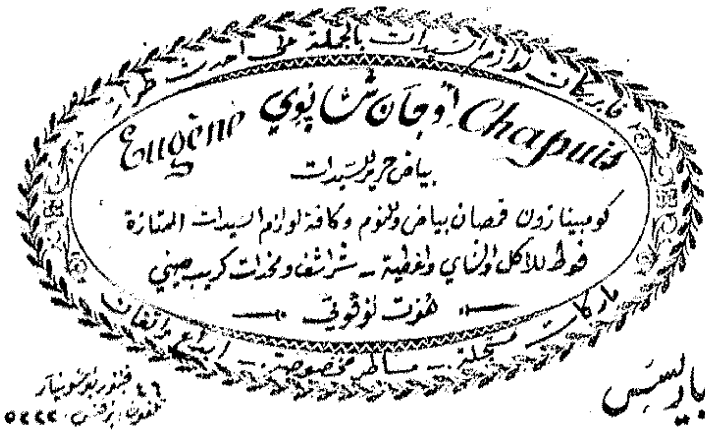 فابريكات لوازم السيدات بالجملة على احدث طراز
Eugène اوجان شابوي Chapuis
بياض حرير للسيدات
كومبينازون قمصان بياض وللنوم وكافة لوازم السيدات الممتازة
فوط للأكل والشاي واغطية – شراشف ومخدات كريب صيني
هوت نوفوتي
ماركات مسجلة – مساطر مخصوصة – ابداع واتقان
باريس
٤٦